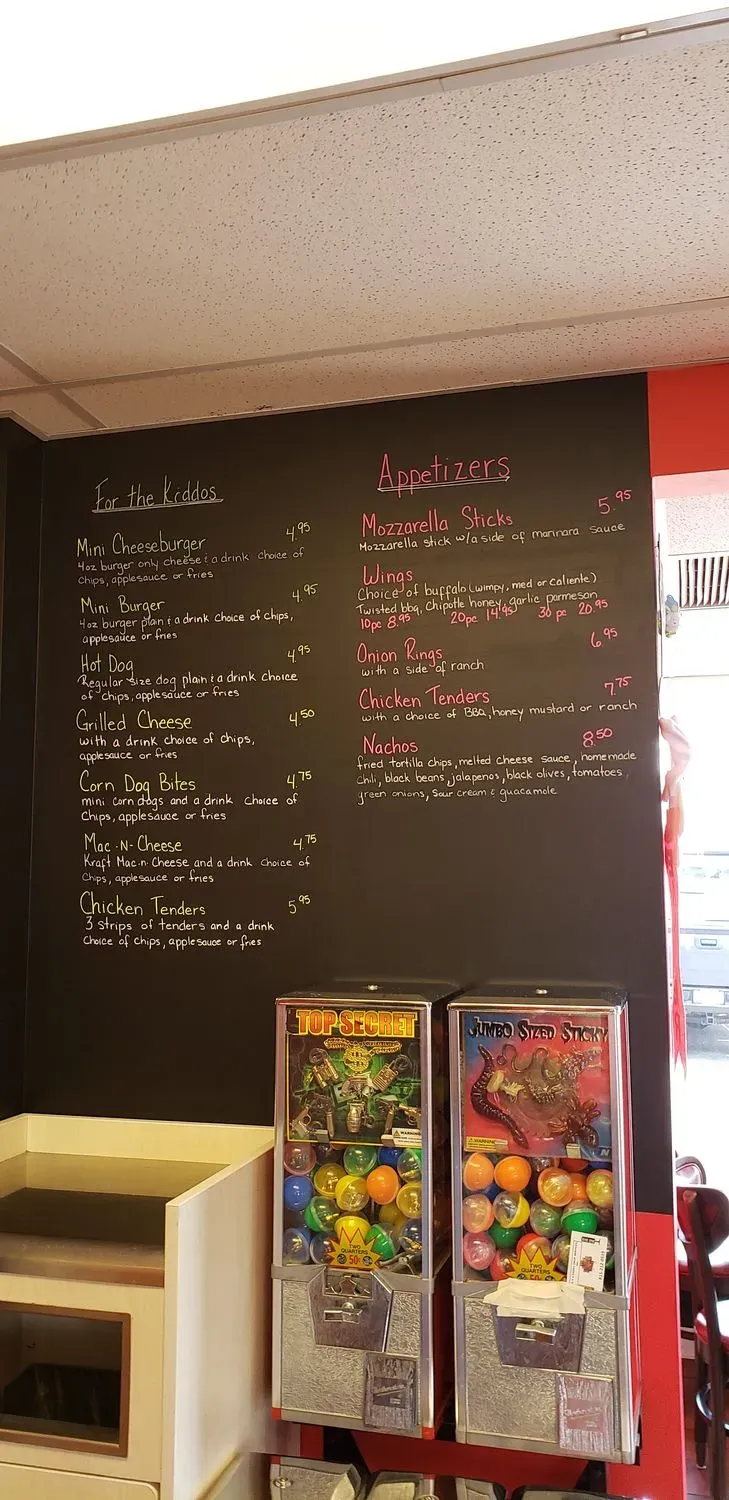 For the Kiddos
Mini Cheeseburger 4.95
4oz burger only cheese & a drink choice of
chips, applesauce or fries
Mini Burger 4.95
4oz burger plain & a drink choice of chips,
applesauce or fries
Hot Dog 4.95
Regular size dog plain & a drink choice
of chips, applesauce or fries
Grilled Cheese 4.50
with a drink choice of chips,
applesauce or fries
Corn Dog Bites 4.75
mini corn dogs and a drink choice of
chips, applesauce or fries
Mac-N-Cheese 4.75
Kraft Mac-n-Cheese and a drink choice of
chips, applesauce or fries
Chicken Tenders 5.95
3 strips of tenders and a drink
choice of chips, applesauce or fries
Appetizers
Mozzarella Sticks 5.95
Mozzarella stick w/a side of marinara sauce
Wings
Choice of buffalo (wimpy, med or caliente)
Twisted bbq, chipotle honey, garlic parmeson
10pc 8.95 20pc 14.95 30 pc 20.95
Onion Rings 6.95
with a side of ranch
Chicken Tenders 7.75
with a choice of BBQ, honey mustard or ranch
Nachos 8.50
fried tortilla chips, melted cheese sauce, homemade
chili, black beans, jalapenos, black olives, tomatoes,
green onions, sour cream & guacamole
TOP SECRET
WARNING
TWO
QUARTERS
50¢
JUMBO SIZED STICKY
WARNING
TWO
QUARTERS
50¢